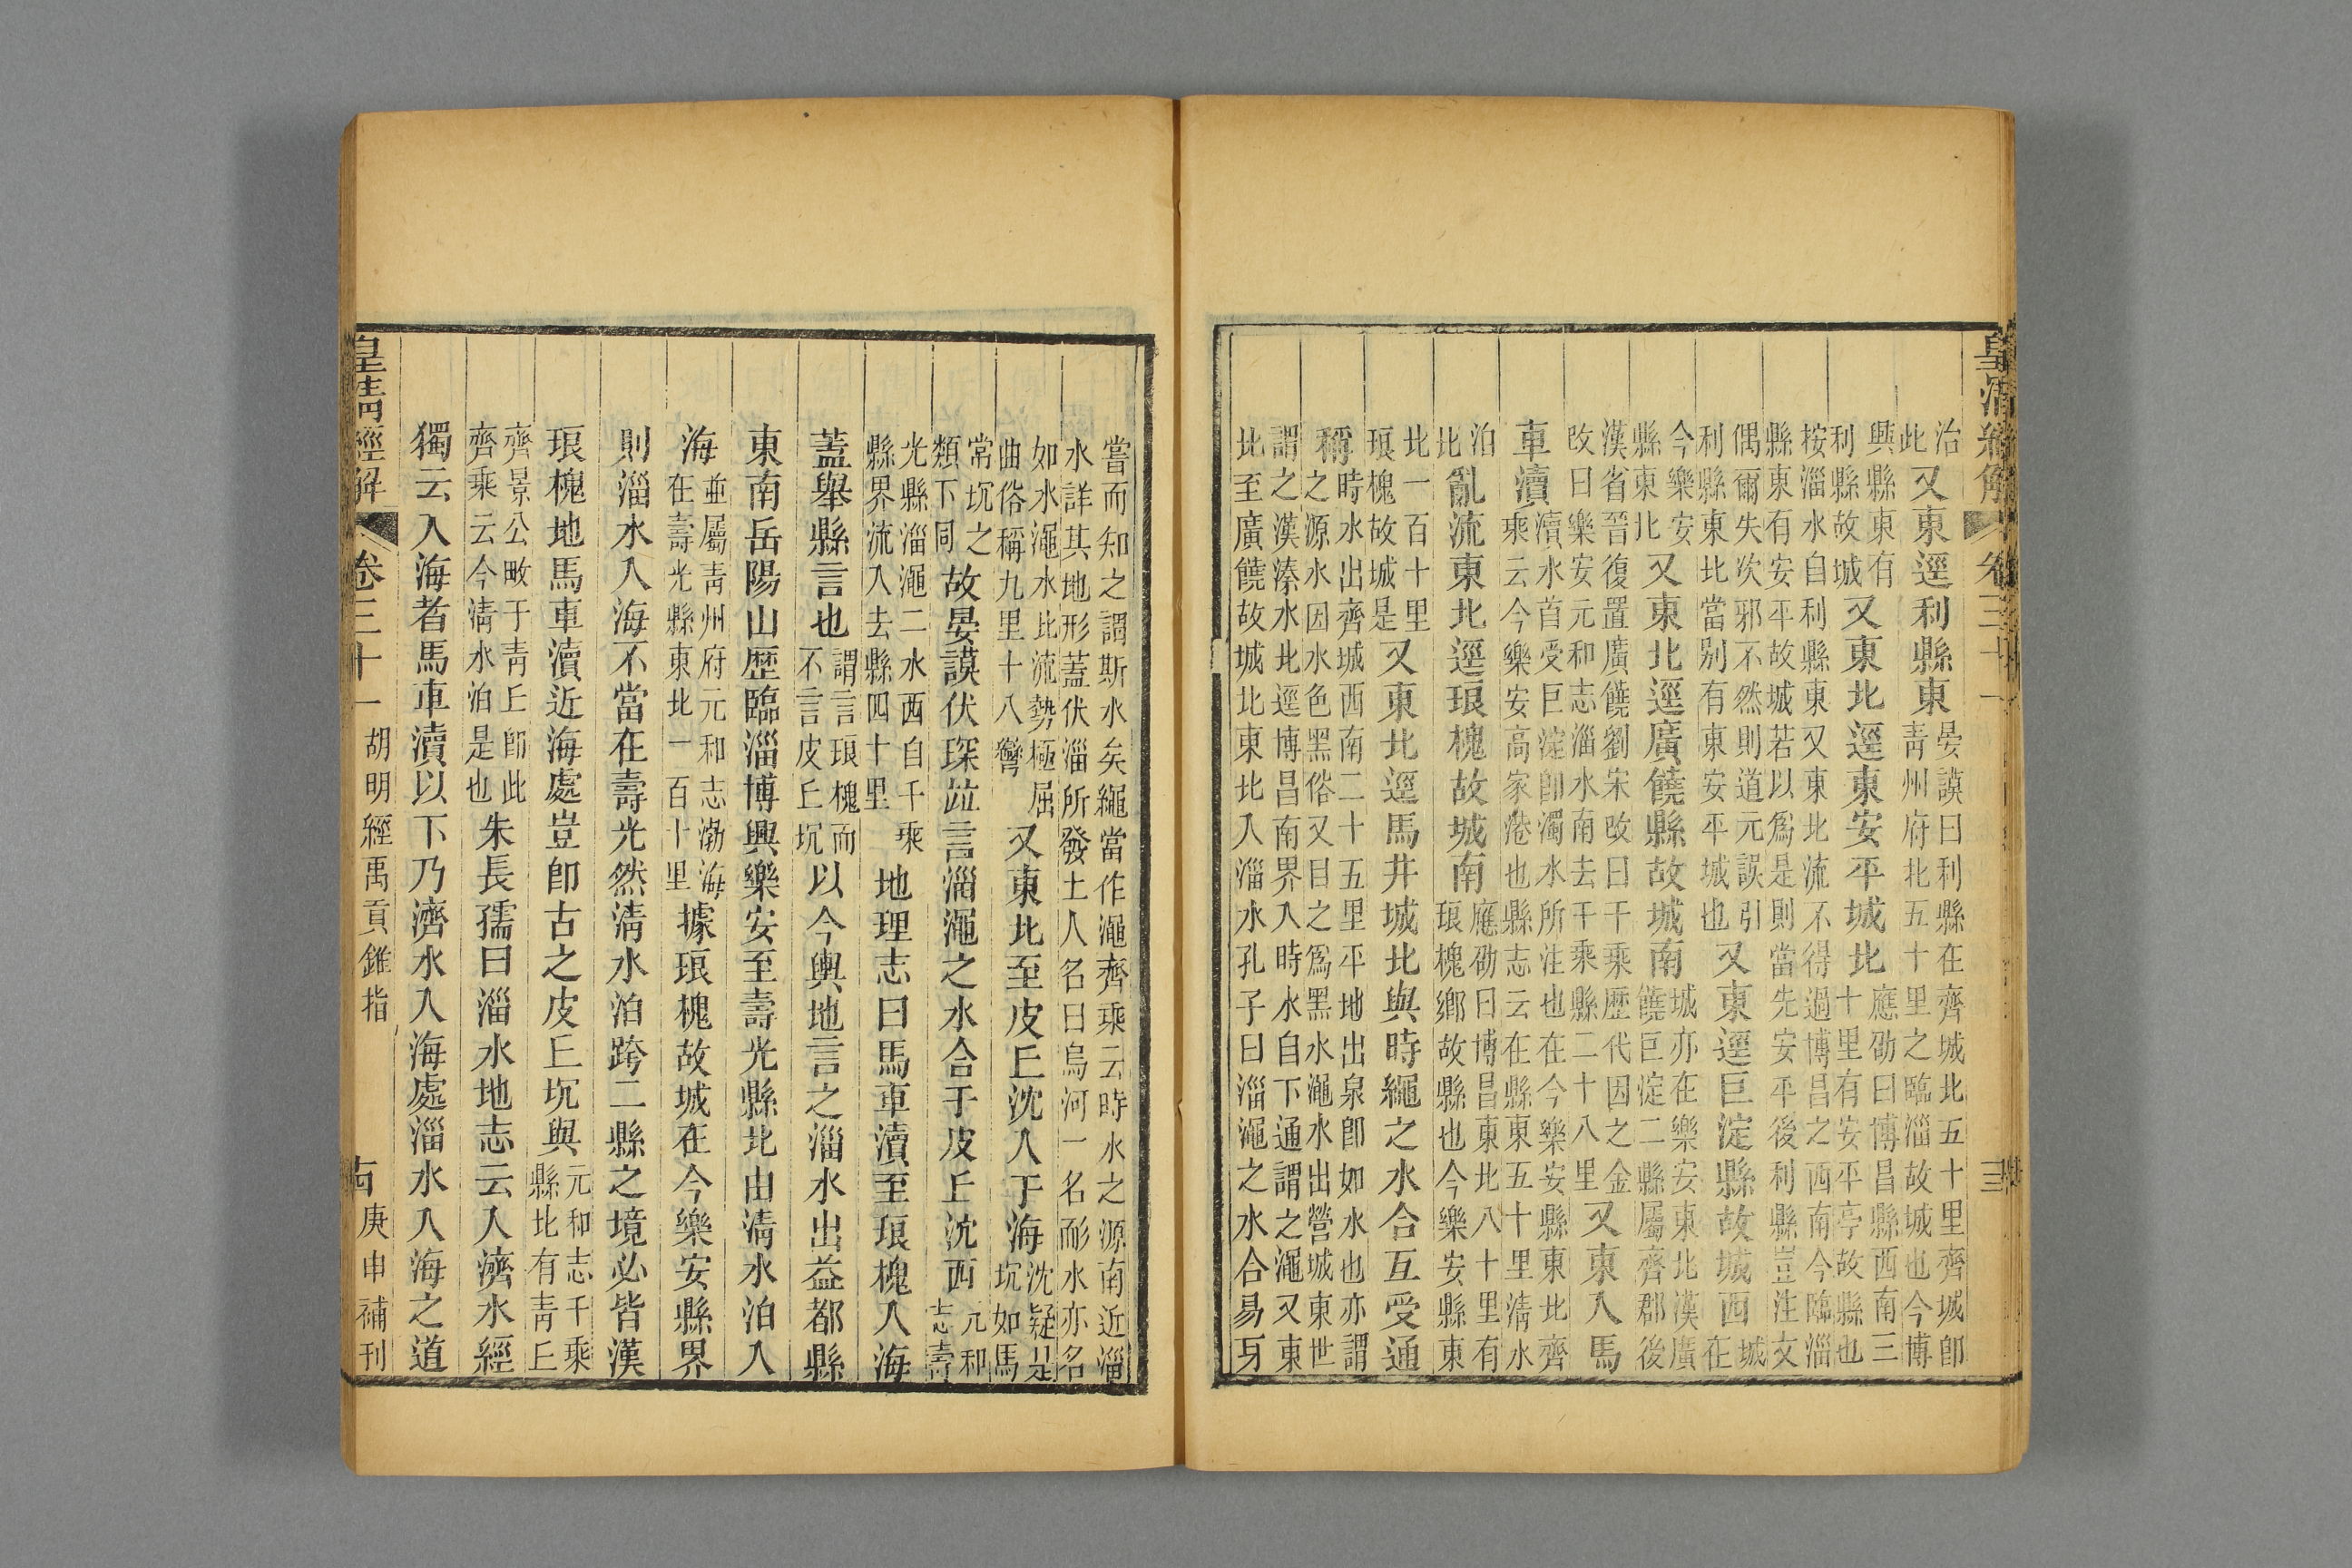 皇清經解 卷三十一 三
治
此
又東逕利縣東
晏謨曰利縣在齊城北五十里齊城卽
靑州府北五十里之臨淄故城也今博
興縣東有
利縣故城
又東北逕東安平城北
應劭曰博昌縣西南三
十里有安平亭故縣也
桉淄水自利縣東又東北流不得過博昌之西南今臨淄
縣東有安平故城若以爲是則當先安平後利縣豈注文
偶爾失次邪不然則道元誤引
利縣東北當別有東安平城也
又東逕巨淀縣故城西
城
在
今樂安
縣東北
又東北逕廣饒縣故城南
城亦在樂安東北漢廣
饒巨淀二縣屬齊郡後
漢省晉復置廣饒劉宋改曰千乘歷代因之金
改曰樂安元和志淄水南去千乘縣二十八里
又東入馬
車瀆
瀆水首受巨淀卽濁水所注也在今樂安縣東北齊
乘云今樂安高家港也縣志云在縣東五十里淸水
泊
北
亂流東北逕琅槐故城南
應劭曰博昌東北八十里有
琅槐鄉故縣也今樂安縣東
北一百十里
琅槐故城是
又東北逕馬井城北與時繩之水合互受通
稱
時水出齊城西南二十五里平地出泉卽如水也亦謂
之源水因水色黑俗又目之爲黑水澠水出營城東世
謂之漢溱水北逕博昌南界入時水自下通謂之澠又東
北至廣饒故城北東北入淄水孔子曰淄澠之水合易牙
嘗而知之謂斯水矣繩當作澠齊乘云時水之源南近淄
水詳其地形蓋伏淄所發土人名曰烏河一名耏水亦名
如水澠水北流勢極屈
曲俗稱九里十八彎
又東北至皮丘沈入于海
沈疑是
坑如馬
常坑之
類下同
故晏謨伏琛竝言淄澠之水合于皮丘沈西
元和
志壽
光縣淄澠二水西自千乘
縣界流入去縣四十里
地理志曰馬車瀆至琅槐入海
蓋舉縣言也
謂言琅槐而
不言皮丘坑
以今輿地言之淄水出益都縣
東南岳陽山歷臨淄博興樂安至壽光縣北由淸水泊入
海
並屬靑州府元和志渤海
在壽光縣東北一百十里
據琅槐故城在今樂安縣界
則淄水入海不當在壽光然淸水泊跨二縣之境必皆漢
琅槐地馬車瀆近海處豈卽古之皮丘坑與
元和志千乘
縣北有靑丘
齊景公畋于靑丘卽此
齊乘云今淸水泊是也
朱長孺曰淄水地志云入濟水經
獨云入海者馬車瀆以下乃濟水入海處淄水入海之道
皇清經解 卷三十一 胡明經禹貢錐指 古 庚申補刊